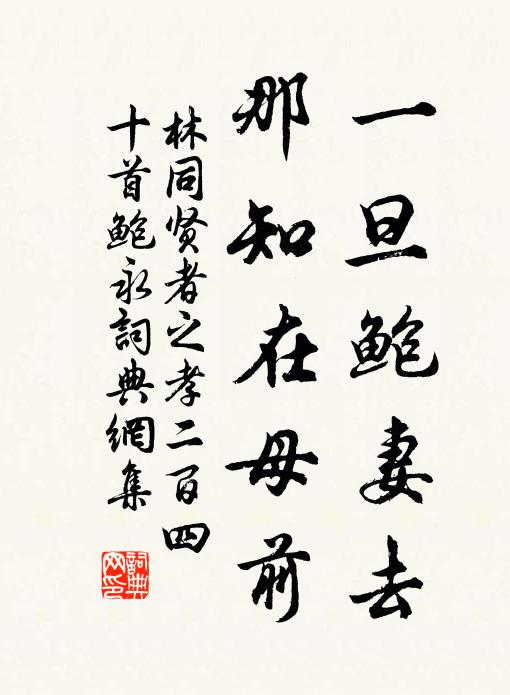 一旦鲍妻去
那知在母前
林同贤者之孝二百四
十首鲍永詞典網集
詞典
网印